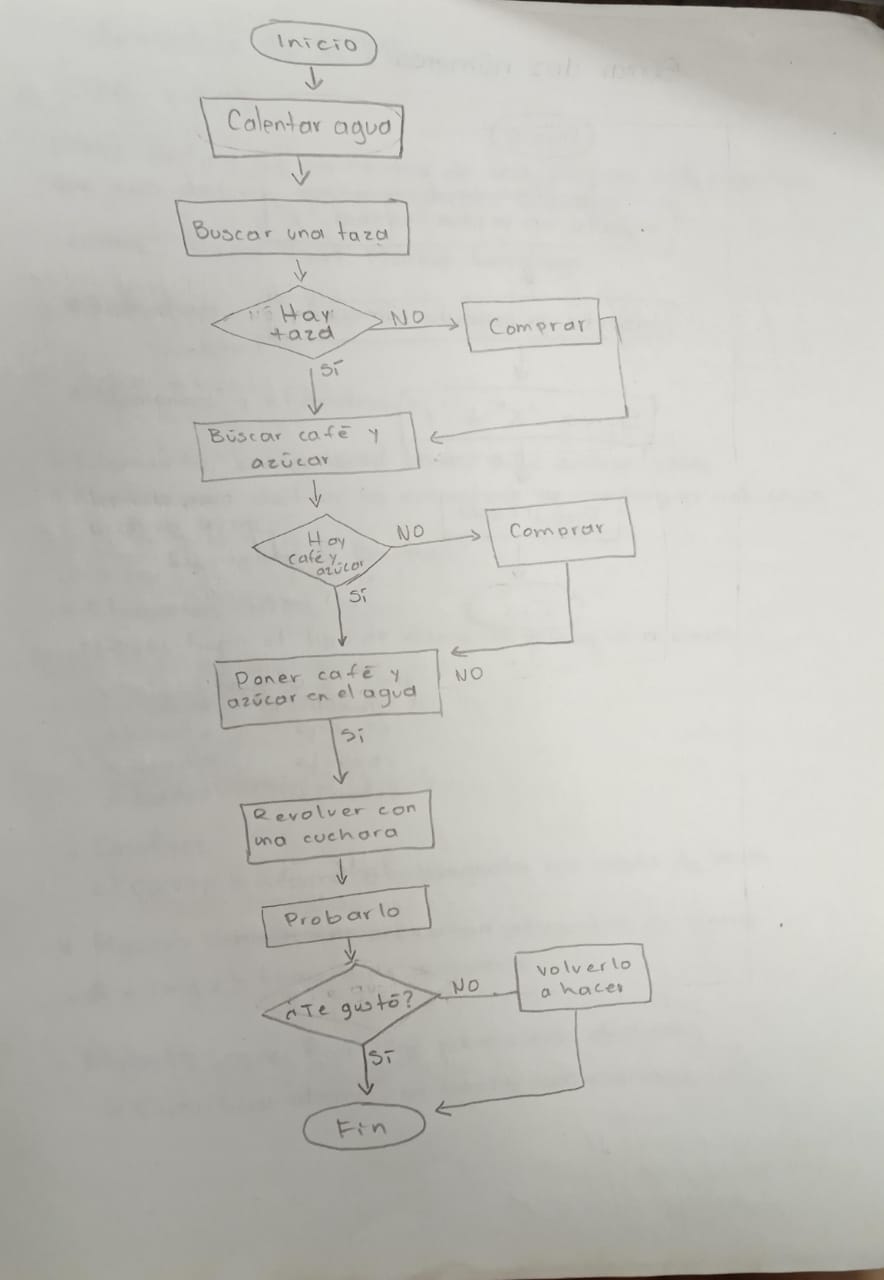 Inicio
Calentar agua
Buscar una taza
Hay
taza
NO
Comprar
SÍ
Búscar café y
azúcar
Hay
café y
azúcar
NO
Comprar
SÍ
Poner café y
azúcar en el agua
NO
Sí
Revolver con
una cuchara
Probarlo
¿Te gustó?
NO
Volverlo
a hacer
SÍ
Fin